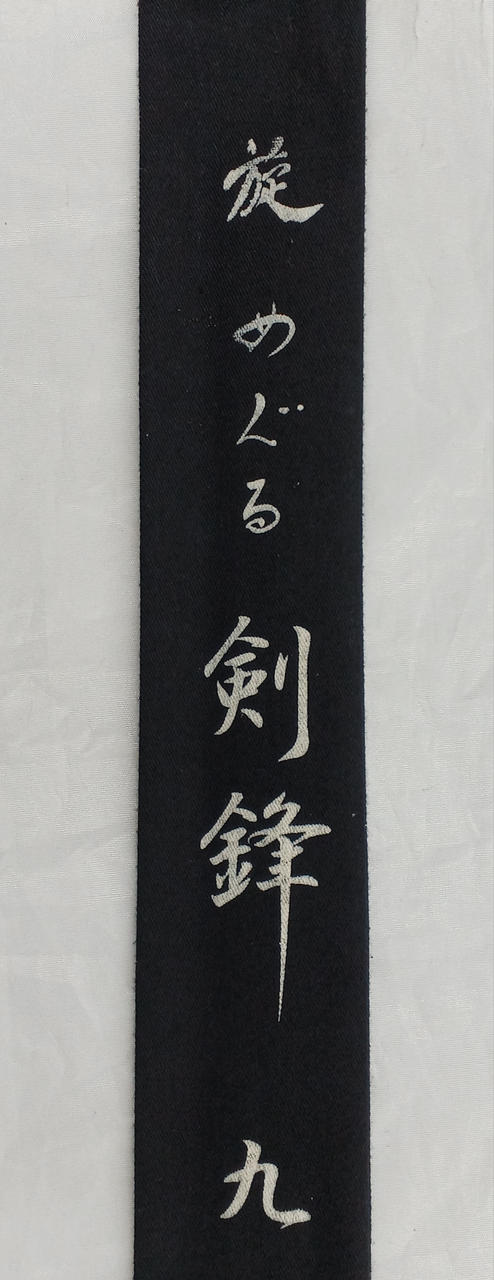 旋めぐる剣鋒 九